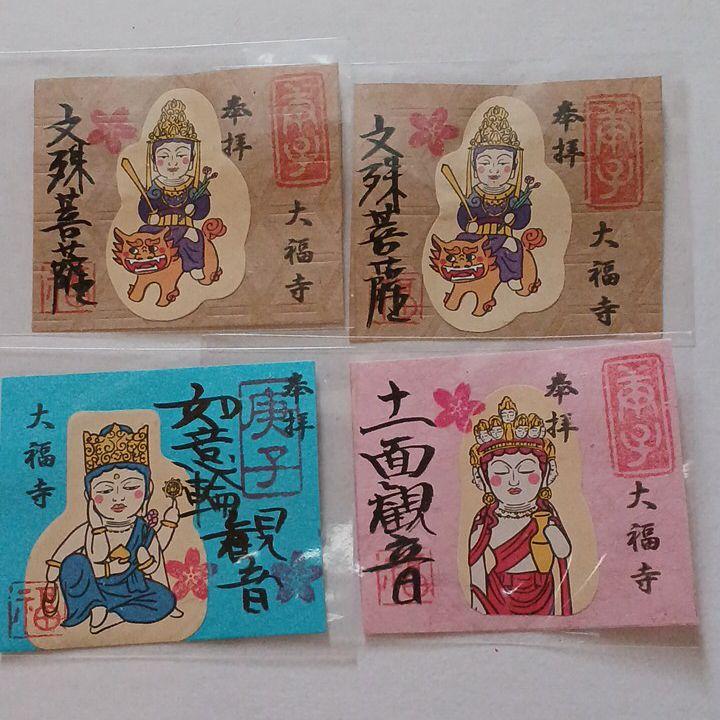 庚子
奉拝
大福寺
文殊菩薩
庚子
奉拝
大福寺
文殊菩薩
奉拝
庚子
如意輪観音
大福寺
福
庚子
奉拝
大福寺
十一面観音